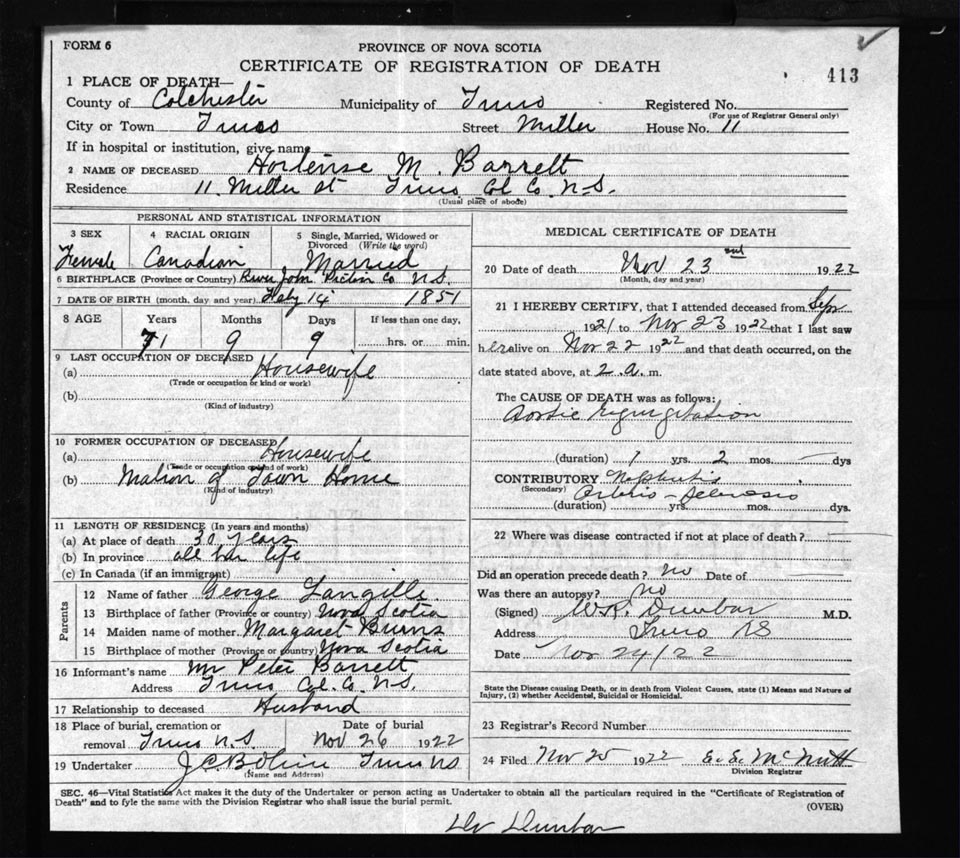 FORM 6
PROVINCE OF NOVA SCOTIA
CERTIFICATE OF REGISTRATION OF DEATH
413
1 PLACE OF DEATH—
County of Colchester Municipality of Truro Registered No.
(For use of Registrar General only)
City or Town Truro Street Miller House No. 11
If in hospital or institution, give name
2 NAME OF DECEASED Hortense M. Barrett
Residence 11 Miller St Truro Col Co. N.S.
(Usual place of abode)
PERSONAL AND STATISTICAL INFORMATION
3 SEX 4 RACIAL ORIGIN 5 Single, Married, Widowed or Divorced (Write the word)
Female Canadian Married
6 BIRTHPLACE (Province or Country) River John Pictou Co N.S.
7 DATE OF BIRTH (month, day and year) Feby 14 1851
8 AGE Years Months Days If less than one day,
71 9 9 hrs. or min.
9 LAST OCCUPATION OF DECEASED
(a) Housewife
(Trade or occupation or kind or work)
(b)
(Kind of industry)
10 FORMER OCCUPATION OF DECEASED
(a) Housewife
(Trade or occupation or kind of work)
(b) Matron of Town Home
(Kind of industry)
11 LENGTH OF RESIDENCE (In years and months)
(a) At place of death 30 years
(b) In province all her life
(c) In Canada (if an immigrant)
Parents
12 Name of father George Langille
13 Birthplace of father (Province or country) Nova Scotia
14 Maiden name of mother Margaret Burns
15 Birthplace of mother (Province or country) Nova Scotia
16 Informant's name Mr Peter Barrett
Address Truro Col. Co. N.S.
17 Relationship to deceased Husband
18 Place of burial, cremation or removal Truro N.S. Date of burial Nov 26 1922
19 Undertaker Truro NS
(Name and Address)
MEDICAL CERTIFICATE OF DEATH
20 Date of death Nov 23 1922
(Month, day and year)
21 I HEREBY CERTIFY, that I attended deceased from Sep
1921 to Nov 23 1922 that I last saw
her alive on Nov 22 1922 and that death occurred, on the
date stated above, at 2 a.m.
The CAUSE OF DEATH was as follows:
Aortic regurgitation
(duration) 1 yrs. 2 mos. — dys
CONTRIBUTORY Nephritis
(Secondary) Arterio-sclerosis
(duration) yrs. mos. dys.
22 Where was disease contracted if not at place of death?
Did an operation precede death? no Date of
Was there an autopsy? no
(Signed) W.R. Dunbar M.D.
Address Truro NS
Date Nov 24/22
State the Disease causing Death, or in death from Violent Causes, state (1) Means and Nature of
Injury, (2) whether Accidental, Suicidal or Homicidal.
23 Registrar's Record Number
24 Filed Nov 25 1922 E. E. McNutt
Division Registrar
SEC. 46—Vital Statistics Act makes it the duty of the Undertaker or person acting as Undertaker to obtain all the particulars required in the "Certificate of Registration of
Death" and to fyle the same with the Division Registrar who shall issue the burial permit.
(OVER)
Dr Dunbar